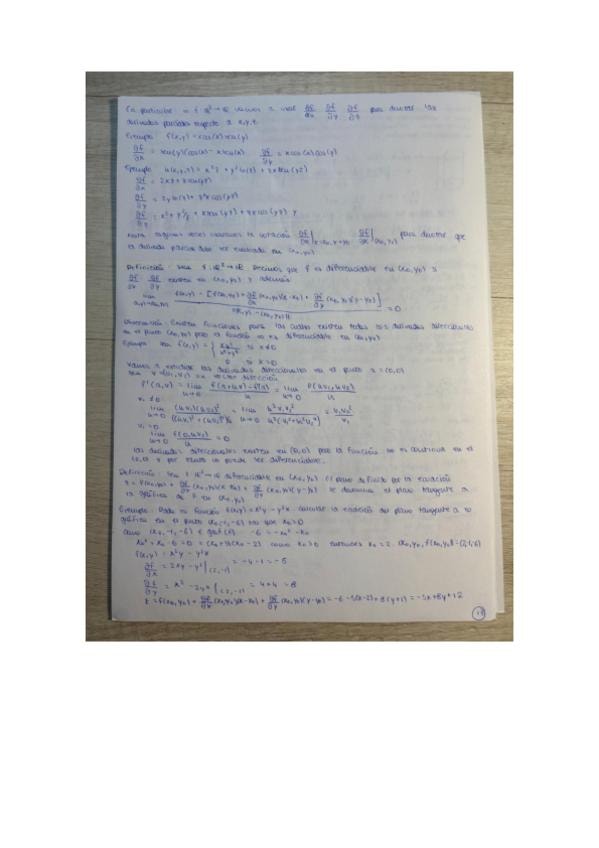 En particular: si f: ℝ³→ℝ vamos a usar ∂f/∂x ∂f/∂y ∂f/∂z para denotar las
derivadas parciales respecto a x,y,z.
Ejemplo: f(x,y) = xcos(x)sen(y)
∂f/∂x = sen(y)(cos(x) - xsen(x)) ∂f/∂y = xcos(x)cos(y)
Ejemplo:
∂f/∂x = 2xz + zsen(yz)
∂f/∂y =
∂f/∂z =
Nota: algunas veces usaremos la notación para denotar que
la derivada parcial debe ser evaluada en (x₀,y₀).
Definición: sea f: ℝ²→ℝ. Decimos que f es diferenciable en (x₀,y₀) si
∂f/∂x ∂f/∂y existen en (x₀,y₀) y además
lim f(x,y) - [f(x₀,y₀) + ∂f/∂x (x₀,y₀)(x-x₀) + ∂f/∂y (x₀,y₀)(y-y₀)] = 0
Observación: Existen funciones para las cuales existen todas sus derivadas direccionales
en el punto (x₀,y₀) pero la función no es diferenciable en (x₀,y₀)
Ejemplo: sea f(x,y) = { xy²/x²+y⁴ si x≠0
0 si x=0
Vamos a estudiar las derivadas direccionales en el punto a = (0,0)
sea v=(v₁,v₂) un vector dirección
f'(a,v) = lim f(a+hv)-f(a)/h = lim f(hv₁,hv₂)/h
v₁≠0
lim h→0 = lim h→0 = v₂²/v₁
v₁=0
lim h→0 f(0,hv₂)/h = 0
Las derivadas direccionales existen en (0,0) pero la función no es continua en el
(0,0) y por tanto no puede ser diferenciable.
Definición: sea f: ℝ²→ℝ diferenciable en (x₀,y₀). El plano definido por la ecuación
z = f(x₀,y₀) + ∂f/∂x (x₀,y₀)(x-x₀) + ∂f/∂y (x₀,y₀)(y-y₀) se denomina el plano tangente a
la gráfica de f en (x₀,y₀)
Ejemplo: Dada la función f(x,y) = x²y - y²x calcular la ecuación del plano tangente a su
gráfica en el punto (x₀,-1,-6) con x₀>0
como (x₀,-1,-6) ∈ graf(f) -6 = -x₀² - x₀
x₀² + x₀ - 6 = 0 = (x₀+3)(x₀-2) como x₀>0 entonces x₀ = 2.
f(x,y) = x²y - y²x
∂f/∂x = 2xy - y² |(2,-1) = -4-1 = -5
∂f/∂y = x² - 2yx |(2,-1) = 4+4 = 8
z = f(x₀,y₀) + ∂f/∂x (x₀,y₀)(x-x₀) + ∂f/∂y (x₀,y₀)(y-y₀) = -6 -5(x-2) + 8(y+1) = -5x+8y+12